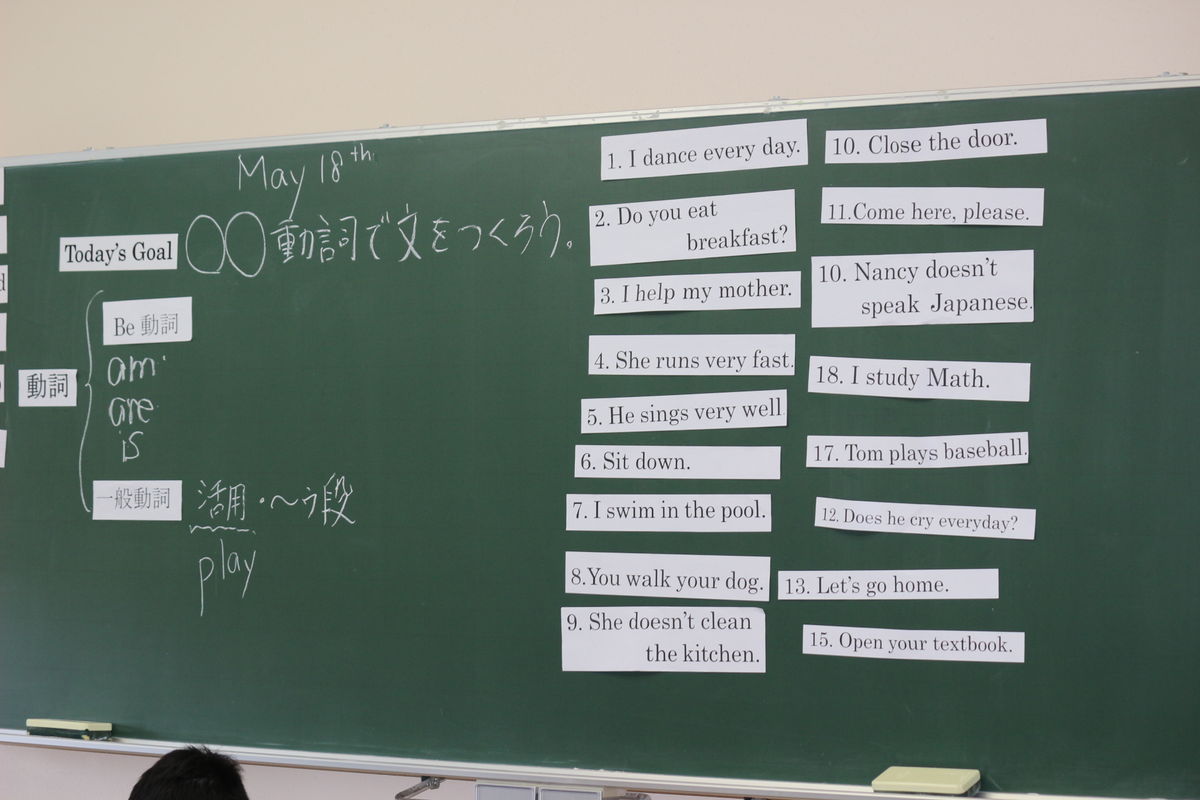 May 18th
Today's Goal
○○動詞で文をつくろう。
Be 動詞
am
are
is
動詞
一般動詞
活用・〜う段
play
1. I dance every day.
2. Do you eat
breakfast?
3. I help my mother.
4. She runs very fast.
5. He sings very well.
6. Sit down.
7. I swim in the pool.
8.You walk your dog.
9. She doesn't clean
the kitchen.
10. Close the door.
11.Come here, please.
10. Nancy doesn't
speak Japanese.
18. I study Math.
17. Tom plays baseball.
12. Does he cry everyday?
13. Let's go home.
15. Open your textbook.